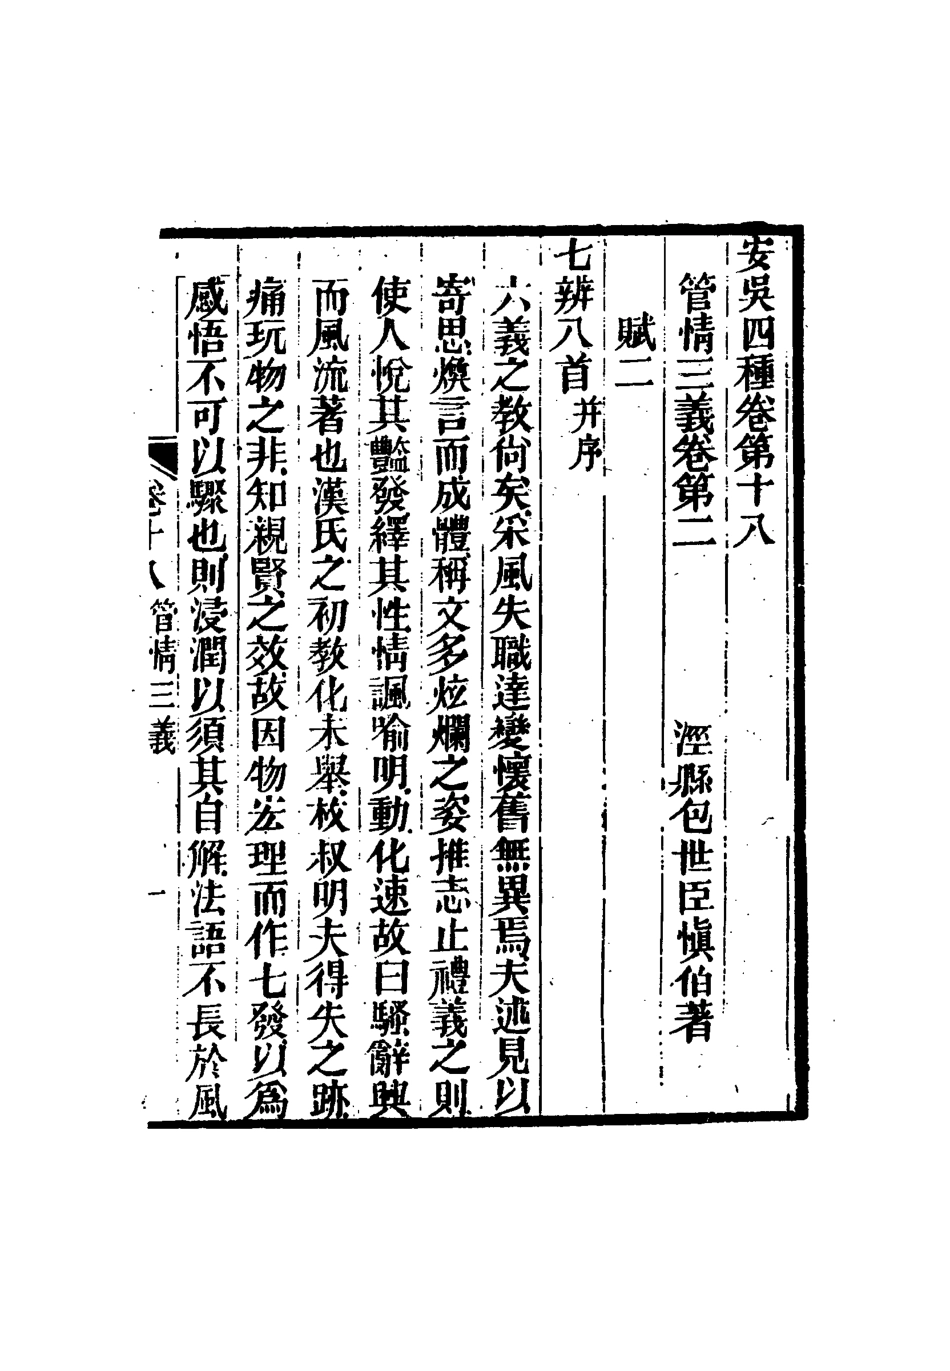 安吳四種卷第十八
管情三義卷第二　涇縣包世臣愼伯著
賦二
七辨八首并序
六義之教尙矣采風失職達變懷舊無異焉夫述見以
寄思煥言而成體稱文多炫爛之姿推志止禮義之則
使人悅其豔發繹其性情諷喻明動化速故曰騷辭興
而風流著也漢氏之初教化未舉枚叔明夫得失之跡
痛玩物之非知親賢之效故因物宏理而作七發以爲
感悟不可以驟也則浸潤以須其自解法語不長於風
卷十八管情三義　一